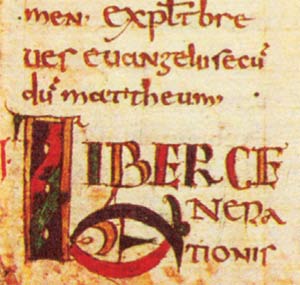 men, explt bre
ues evangelii secu
du mattheum,
LIBER GE
NERA
TIONIS